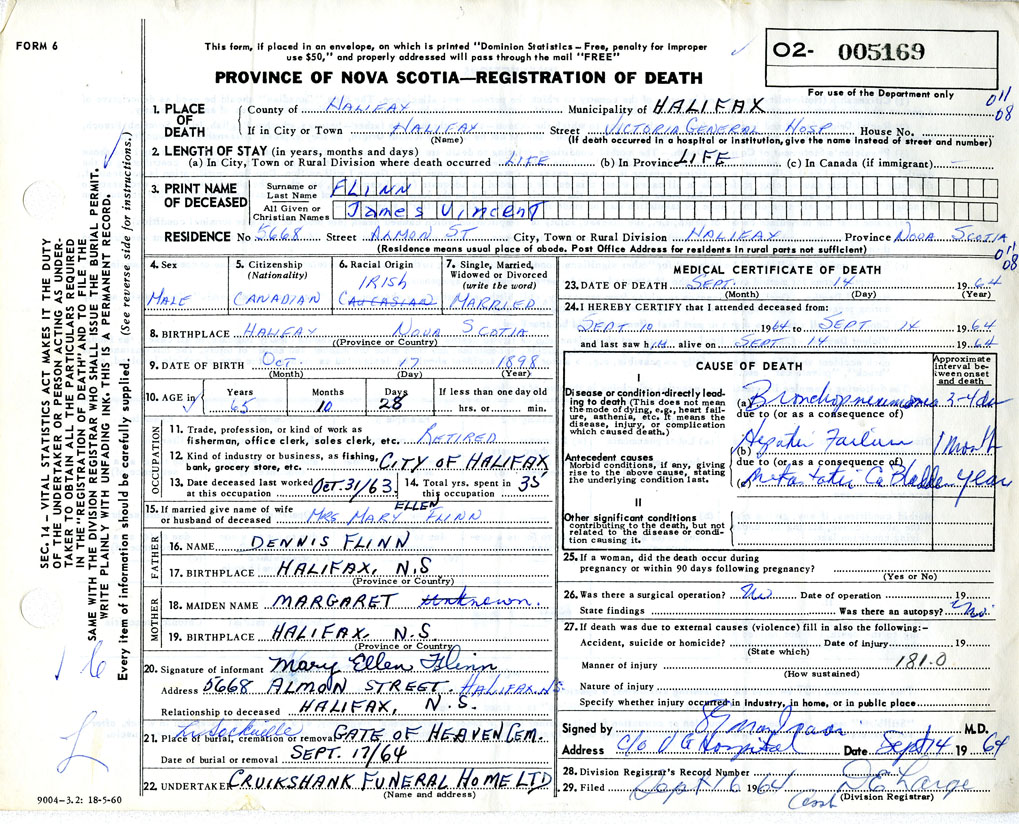 FORM 6
This form, if placed in an envelope, on which is printed "Dominion Statistics – Free, penalty for improper
use $50," and properly addressed will pass through the mail "FREE"
PROVINCE OF NOVA SCOTIA—REGISTRATION OF DEATH
O2- 005169
For use of the Department only
011
08
1. PLACE OF DEATH
County of HALIFAX Municipality of HALIFAX
If in City or Town HALIFAX Street VICTORIA GENERAL HOSP House No.
(Name) (If death occurred in a hospital or institution, give the name instead of street and number)
2. LENGTH OF STAY (in years, months and days)
(a) In City, Town or Rural Division where death occurred LIFE (b) In Province LIFE (c) In Canada (if immigrant) -
3. PRINT NAME OF DECEASED
Surname or Last Name FLINN
All Given or Christian Names James Vincent
RESIDENCE No 5668 Street ALMON ST City, Town or Rural Division HALIFAX Province NOVA SCOTIA
(Residence means usual place of abode. Post Office Address for residents in rural parts not sufficient)
011
08
4. Sex MALE
5. Citizenship (Nationality) CANADIAN
6. Racial Origin IRISH CAUCASIAN
7. Single, Married, Widowed or Divorced (write the word) MARRIED
8. BIRTHPLACE HALIFAX NOVA SCOTIA
(Province or Country)
9. DATE OF BIRTH Oct. 17 1898
(Month) (Day) (Year)
10. AGE in Years 65 Months 10 Days 28 If less than one day old hrs. or min.
OCCUPATION
11. Trade, profession, or kind of work as
fisherman, office clerk, sales clerk, etc. RETIRED
12. Kind of industry or business, as fishing,
bank, grocery store, etc. CITY OF HALIFAX
13. Date deceased last worked at this occupation Oct. 31/63
14. Total yrs. spent in this occupation 35
15. If married give name of wife
or husband of deceased MRS MARY ELLEN FLINN
FATHER
16. NAME DENNIS FLINN
17. BIRTHPLACE HALIFAX, N.S
(Province or Country)
MOTHER
18. MAIDEN NAME MARGARET Unknown.
19. BIRTHPLACE HALIFAX, N.S.
(Province or Country)
20. Signature of informant Mary Ellen Flinn
Address 5668 ALMON STREET. HALIFAX N.S
Relationship to deceased HALIFAX, N.S.
Lr. Sackville
21. Place of burial, cremation or removal GATE OF HEAVEN CEM.
Date of burial or removal SEPT. 17/64
22. UNDERTAKER CRUIKSHANK FUNERAL HOME LTD
(Name and address)
MEDICAL CERTIFICATE OF DEATH
23. DATE OF DEATH SEPT. 14 1964
(Month) (Day) (Year)
24. I HEREBY CERTIFY that I attended deceased from:
SEPT 10 1964 to SEPT 14 1964
and last saw him alive on SEPT 14 1964
CAUSE OF DEATH
Approximate interval between onset and death
I
Disease or condition directly leading to death (This does not mean
the mode of dying, e.g., heart failure, asthenia, etc. It means the
disease, injury, or complication
which caused death.)
(a) Bronchopneumonia 3-4 da
due to (or as a consequence of)
Antecedent causes
Morbid conditions, if any, giving
rise to the above cause, stating
the underlying condition last.
(b) Hepatic Failure 1 Month
due to (or as a consequence of)
(c) Metastatic Ca Bladder Year
II
Other significant conditions
contributing to the death, but not
related to the disease or condition causing it.
25. If a woman, did the death occur during
pregnancy or within 90 days following pregnancy?
(Yes or No)
26. Was there a surgical operation? No Date of operation 19
State findings Was there an autopsy? No.
27. If death was due to external causes (violence) fill in also the following:-
Accident, suicide or homicide? Date of injury 19
(State which)
Manner of injury 181.0
(How sustained)
Nature of injury
Specify whether injury occurred in industry, in home, or in public place
Signed by M.D.
Address c/o V G Hospital Date Sept 14 1964
28. Division Registrar's Record Number
29. Filed Sept 16 1964 D E Large
(Division Registrar)
SEC. 14 – VITAL STATISTICS ACT MAKES IT THE DUTY
OF THE UNDERTAKER OR PERSON ACTING AS UNDER-
TAKER TO OBTAIN ALL THE PARTICULARS REQUIRED
IN THE "REGISTRATION OF DEATH" AND TO FILE THE
SAME WITH THE DIVISION REGISTRAR WHO SHALL ISSUE THE BURIAL PERMIT.
WRITE PLAINLY WITH UNFADING INK. THIS IS A PERMANENT RECORD.
Every item of information should be carefully supplied. (See reverse side for instructions.)
9004-3.2: 18-5-60